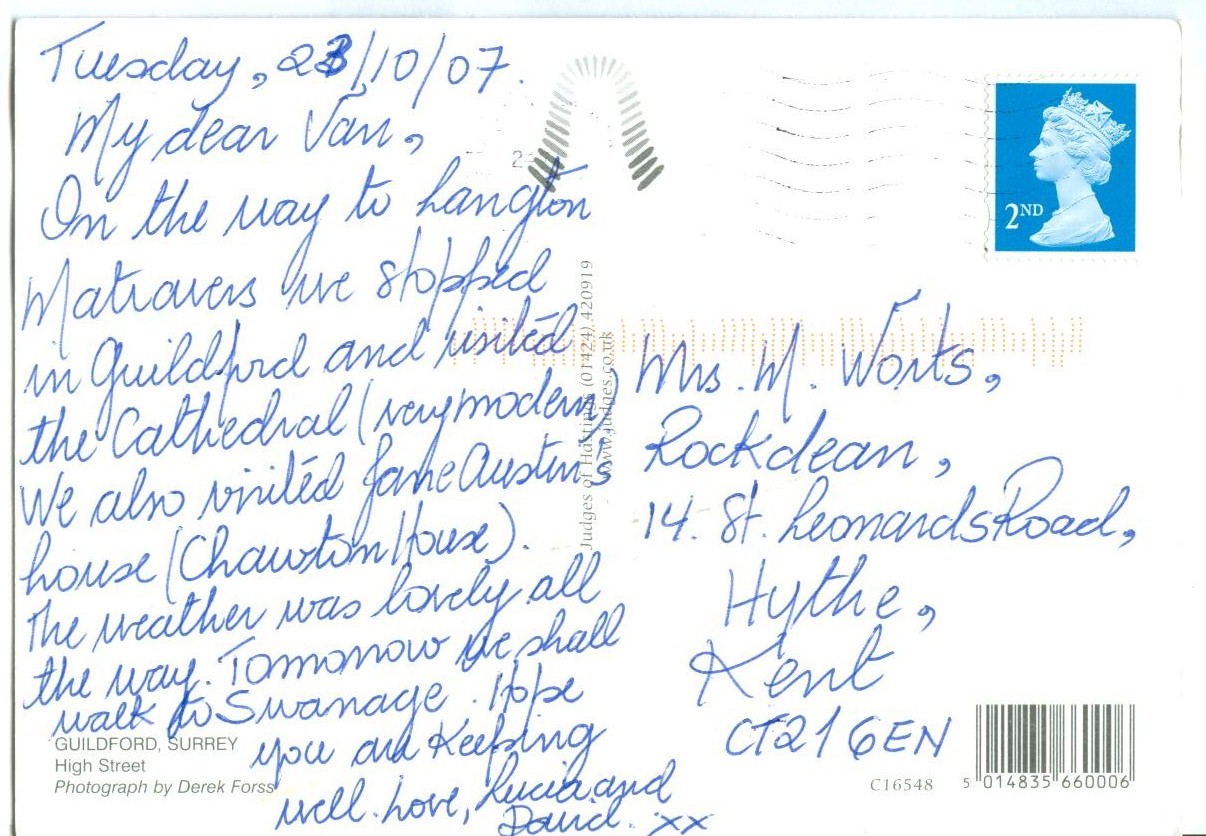 Tuesday, 23/10/07.
My dear Van,
On the way to Langton
Matravers we stopped
in Guildford and visited
the Cathedral (very modern)
We also visited Jane Austin's
house (Chawton House).
The weather was lovely all
the way. Tomorrow we shall
walk to Swanage. Hope
you are keeping
well. Love, Lucia and
David. xx
GUILDFORD, SURREY
High Street
Photograph by Derek Forss
Judges of Hastings (01424) 420919
www.judges.co.uk
2ND
Mrs. M. Worts,
Rockdean,
14. St. Leonards Road,
Hythe,
Kent
CT21 6EN
C16548
5 014835 660006